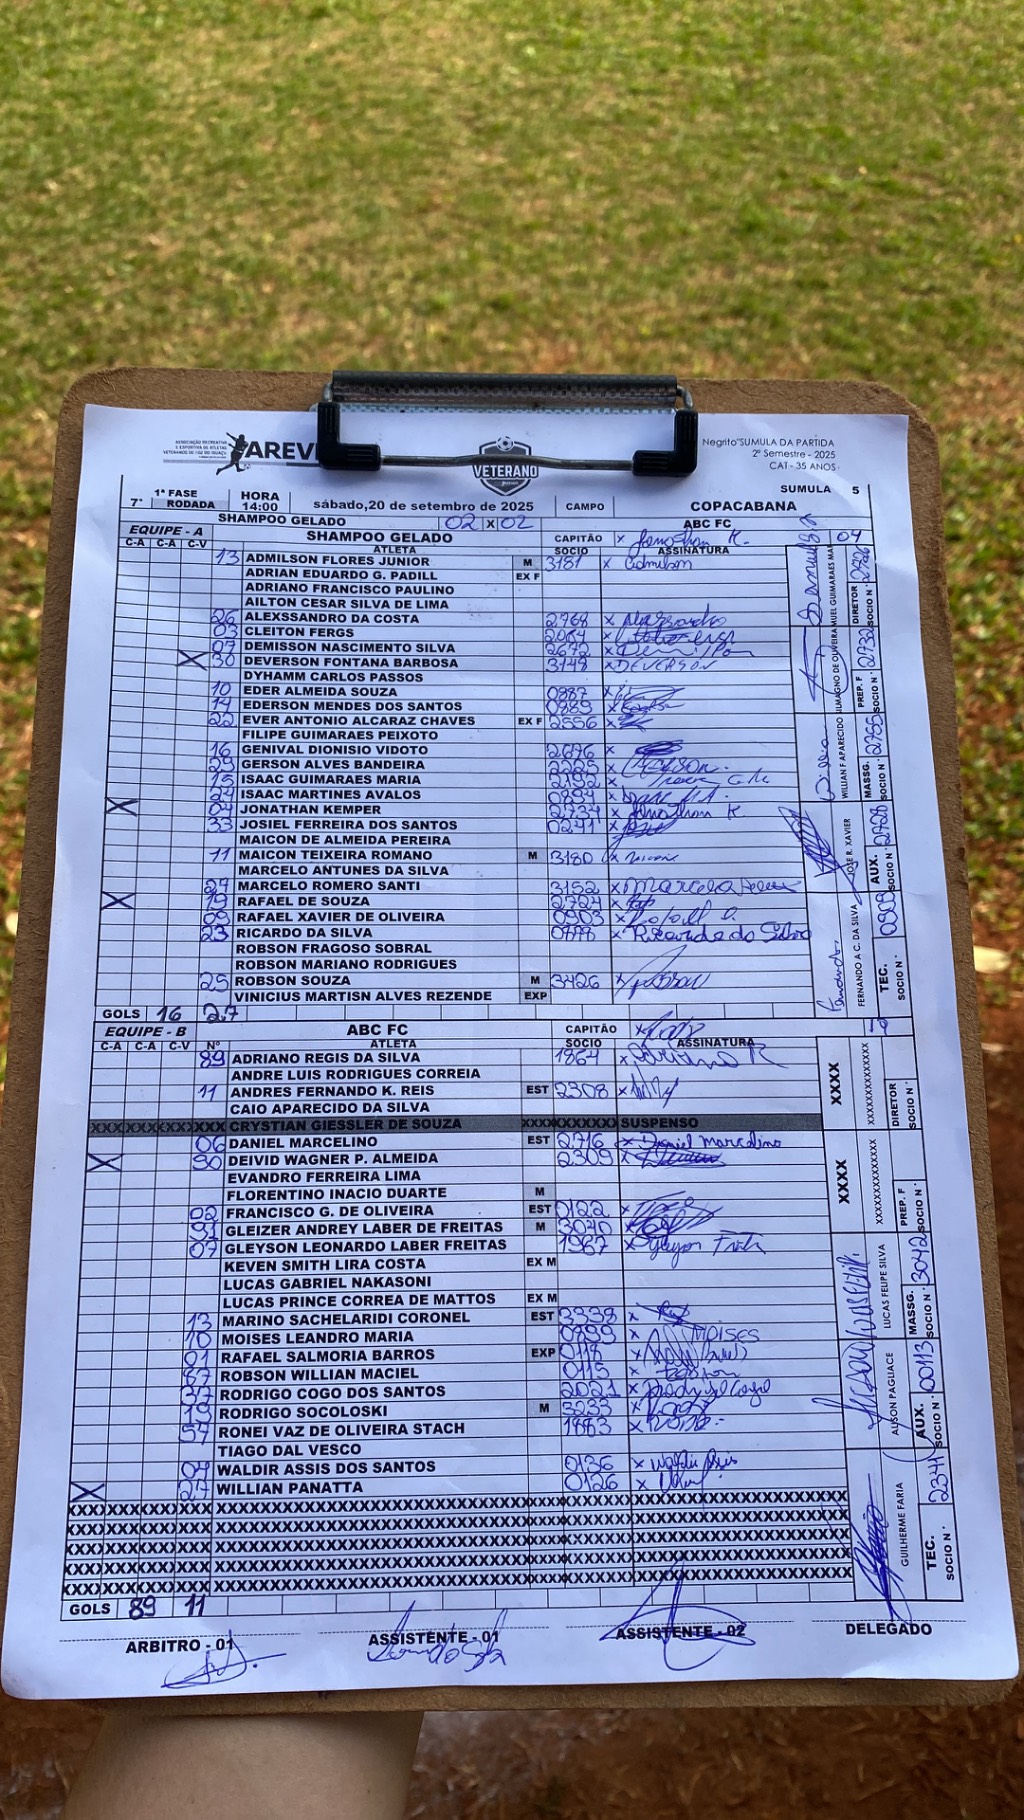 ASSOCIAÇÃO RECREATIVA
E ESPORTIVA DE ATLETAS
VETERANOS DE FOZ DO IGUAÇU
AREV
VETERANO
Negrito"SUMULA DA PARTIDA
2º Semestre - 2025
CAT - 35 ANOS
SUMULA 5
7ª 1ª FASE RODADA HORA 14:00 sábado,20 de setembro de 2025 CAMPO COPACABANA
SHAMPOO GELADO 02 X 02 ABC FC
EQUIPE - A SHAMPOO GELADO CAPITÃO x Jonathan K. 04
C-A C-A C-V ATLETA SOCIO ASSINATURA
13 ADMILSON FLORES JUNIOR M 3181 x Admilson
ADRIAN EDUARDO G. PADILL EX F
ADRIANO FRANCISCO PAULINO
AILTON CESAR SILVA DE LIMA
26 ALEXSSANDRO DA COSTA 2768 x
03 CLEITON FERGS 2064 x
07 DEMISSON NASCIMENTO SILVA 2672 x
X 30 DEVERSON FONTANA BARBOSA 3149 x DEVERSON
DYHAMM CARLOS PASSOS
10 EDER ALMEIDA SOUZA 0887 x
14 EDERSON MENDES DOS SANTOS 0889 x
22 EVER ANTONIO ALCARAZ CHAVES EX F 2556 x
FILIPE GUIMARAES PEIXOTO
16 GENIVAL DIONISIO VIDOTO 2676 x
GERSON ALVES BANDEIRA 2225 x GERSON
15 ISAAC GUIMARAES MARIA 2192 x
ISAAC MARTINES AVALOS 0894 x
X JONATHAN KEMPER 2734 x Jonathan K.
33 JOSIEL FERREIRA DOS SANTOS 0241 x
MAICON DE ALMEIDA PEREIRA
11 MAICON TEIXEIRA ROMANO M 3180 x
MARCELO ANTUNES DA SILVA
27 MARCELO ROMERO SANTI 3152 x Marcelo
X 19 RAFAEL DE SOUZA 2724 x
09 RAFAEL XAVIER DE OLIVEIRA 0903 x
23 RICARDO DA SILVA x Ricardo da Silva
ROBSON FRAGOSO SOBRAL
ROBSON MARIANO RODRIGUES
25 ROBSON SOUZA M 3426 x
VINICIUS MARTISN ALVES REZENDE EXP
GOLS 16 27
DIRETOR SOCIO N°
PREP. F SOCIO N° 2732
WILLIAN F APARECIDO MASSG. SOCIO N° 2755
JOSE R. XAVIER AUX. SOCIO N° 2728
Fernando FERNANDO A C. DA SILVA TEC. SOCIO N° 0909
EQUIPE - B ABC FC CAPITÃO x
C-A C-A C-V Nº ATLETA SOCIO ASSINATURA
89 ADRIANO REGIS DA SILVA 1864 x Adriano R
ANDRE LUIS RODRIGUES CORREIA
11 ANDRES FERNANDO K. REIS EST 2308 x
CAIO APARECIDO DA SILVA
XXXXXXXXXXXXXXX CRYSTIAN GIESSLER DE SOUZA XXXXXXXXXX SUSPENSO
06 DANIEL MARCELINO EST 2716 x Daniel Marcelino
X 90 DEIVID WAGNER P. ALMEIDA 2309 x
EVANDRO FERREIRA LIMA
FLORENTINO INACIO DUARTE M
02 FRANCISCO G. DE OLIVEIRA EST 0122 x
91 GLEIZER ANDREY LABER DE FREITAS M 3040 x
07 GLEYSON LEONARDO LABER FREITAS 1967 x
KEVEN SMITH LIRA COSTA EX M
LUCAS GABRIEL NAKASONI
LUCAS PRINCE CORREA DE MATTOS EX M
13 MARINO SACHELARIDI CORONEL EST 3338 x
10 MOISES LEANDRO MARIA 0899 x MOISES
01 RAFAEL SALMORIA BARROS EXP 0118 x
87 ROBSON WILLIAN MACIEL 0115 x
37 RODRIGO COGO DOS SANTOS 2021 x
19 RODRIGO SOCOLOSKI M 3233 x
57 RONEI VAZ DE OLIVEIRA STACH 1883 x
TIAGO DAL VESCO
04 WALDIR ASSIS DOS SANTOS 0136 x Waldir Assis
X 27 WILLIAN PANATTA 0126 x
GOLS 89 11
XXXX XXXXXXXXXXXXXX DIRETOR SOCIO N°
XXXX XXXXXXXXXXXXXX PREP. F SOCIO N°
LUCAS FELIPE SILVA MASSG. SOCIO N° 3042
ALISON PAGLIACE AUX. SOCIO N° 00113
GUILHERME FARIA TEC. SOCIO N° 2341
ARBITRO - 01 ASSISTENTE - 01 ASSISTENTE - 02 DELEGADO